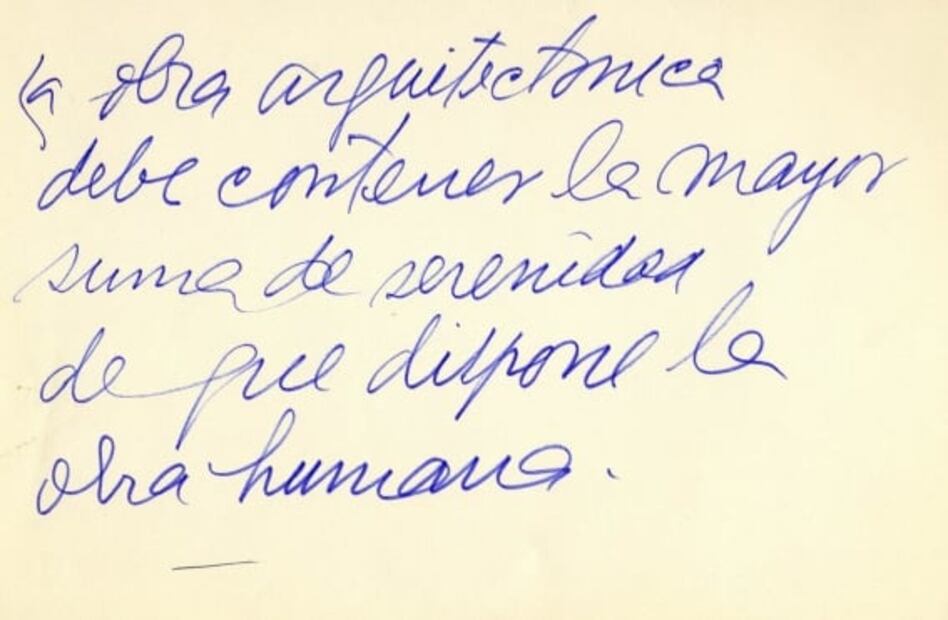 la obra arquitectonica
debe contener la mayor
suma de serenidad
de que dispone la
obra humana.